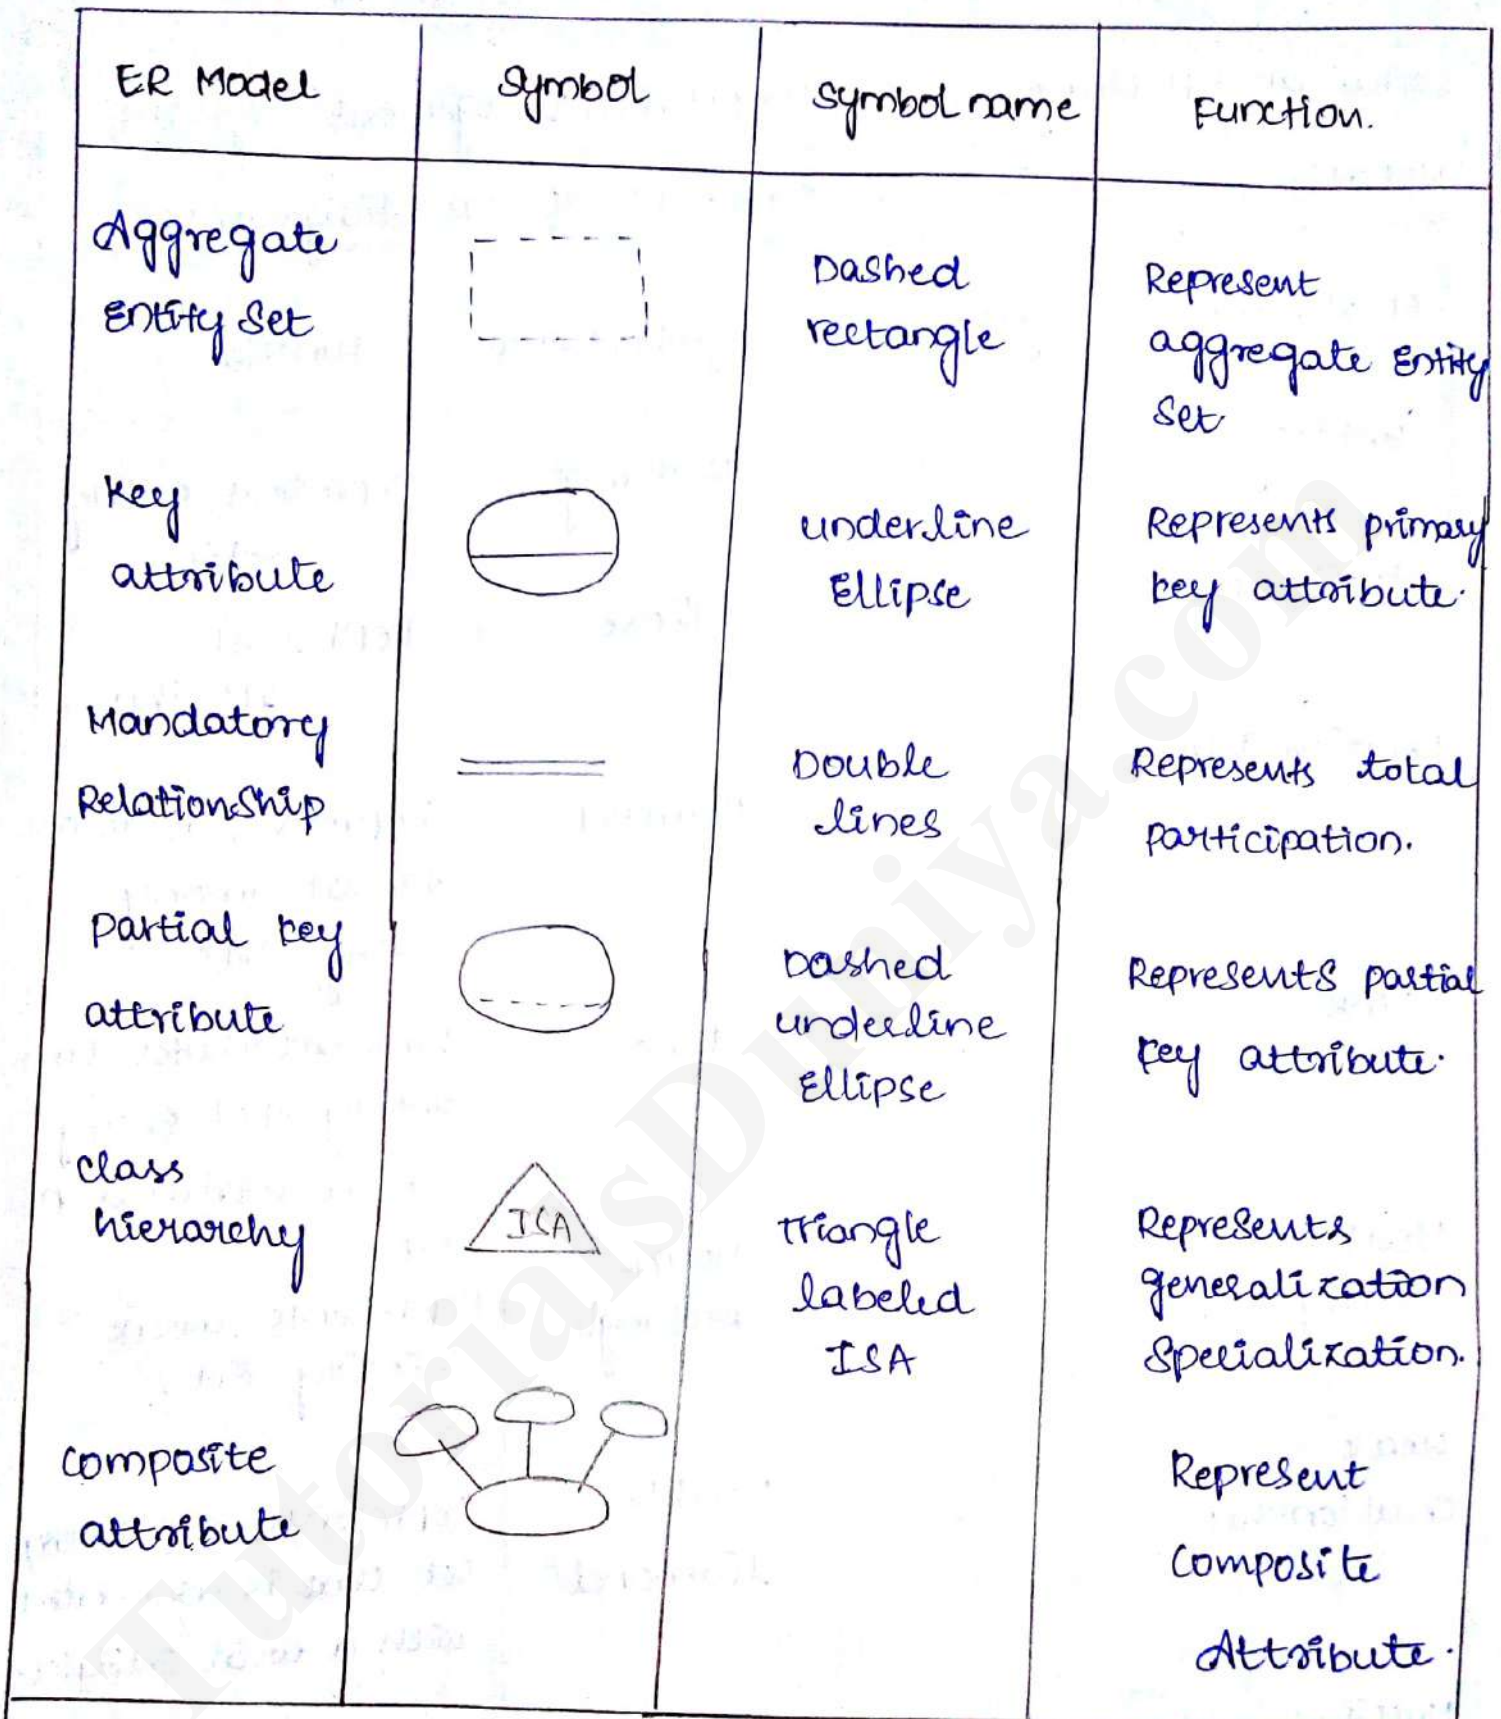 ER Model
Symbol
Symbol name
Function.
Aggregate
Entity Set
Dashed
rectangle
Represent
aggregate Entity
Set
Key
attribute
underline
Ellipse
Represents primary
key attribute.
Mandatory
Relationship
Double
lines
Represents total
participation.
Partial key
attribute
Dashed
underline
Ellipse
Represents partial
key attribute.
class
hierarchy
ISA
Triangle
labeled
ISA
Represents
generalization
Specialization.
composite
attribute
Represent
Composite
Attribute.
TutorialsDuniya.com